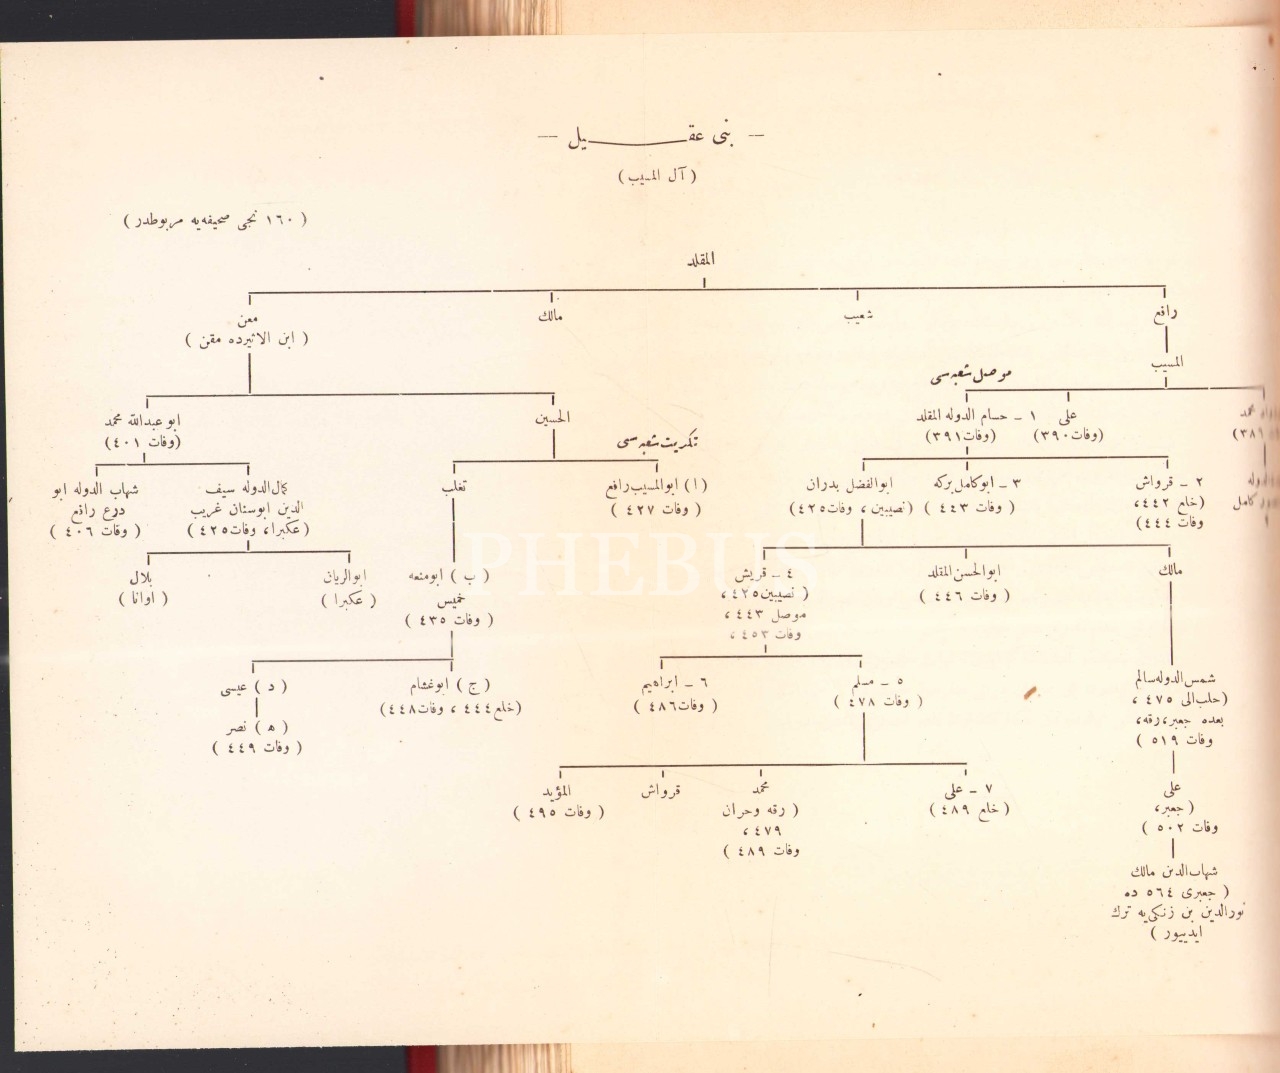 — بنی عقـــــیل —
( آل المسیب )
( ١٦٠ نجی صحیفه‌یه مربوطدر )
المقلد
رافع
شعیب
مالك
معن
( ابن الاثیرده مقن )
المسیب
موصل شعبه‌سی
محمد
علی
(وفات ٣٩٠)
١ ـ حسام الدوله المقلد
(وفات ٣٩١)
الحسین
ابو عبدالله محمد
(وفات ٤٠١)
تكریت شعبه‌سی
٢ ـ قرواش
(خلع ٤٤٢،
وفات ٤٤٤)
٣ ـ ابوكامل بركه
( وفات ٤٤٣ )
ابوالفضل بدران
(نصیبین ، وفات ٤٢٥)
( ا ) ابوالمسیب رافع
( وفات ٤٢٧ )
تغلب
كمال‌الدوله سیف
الدین ابوسنان غریب
(عكبرا، وفات ٤٢٥ )
شهاب الدوله ابو
دوع رافع
( وفات ٤٠٦ )
مالك
ابوالحسن المقلد
( وفات ٤٤٦ )
٤ ـ قریش
( نصیبین ٤٢٥،
موصل ٤٤٣ ،
وفات ٤٥٣ ،
( ب ) ابومنعه
خمیس
( وفات ٤٣٥ )
ابوالریان
( عكبرا )
بلال
( اوانا )
شمس‌الدوله سالم
(حلب الی ٤٧٥ ،
بعده جعبر، رقه،
وفات ٥١٩ )
٥ ـ مسلم
( وفات ٤٧٨ )
٦ ـ ابراهیم
( وفات ٤٨٦ )
( ج ) ابوغشام
(خلع ٤٤٤ ، وفات ٤٤٨)
( د ) عیسی
( ه ) نصر
( وفات ٤٤٩ )
علی
(جعبر،
وفات ٥٠٢ )
٧ ـ علی
( خلع ٤٨٩ )
محمد
( رقه وحران
٤٧٩ ،
وفات ٤٨٩ )
قرواش
المؤید
( وفات ٤٩٥ )
شهاب‌الدین مالك
( جعبری ٥٦٤ ده
نورالدین بن زنكی‌یه ترك
ایدییور )
PHEBUS